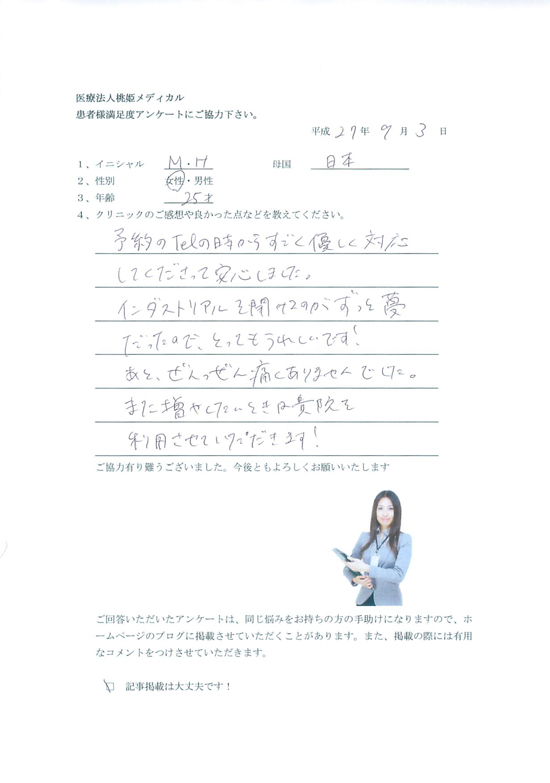 医療法人桃姫メディカル
患者様満足度アンケートにご協力下さい。
平成 27年 9月 3日
1、イニシャル M・H 母国 日本
2、性別 女性・男性
3、年齢 25才
4、クリニックのご感想や良かった点などを教えてください。
予約のTelの時からすごく優しく対応
してくださって安心しました。
インダストリアルを開けるのがずっと夢
だったので、とってもうれしいです!
あと、ぜんっぜん痛くありませんでした。
また増やしたいときは貴院を
利用させていただきます!
ご協力有り難うございました。今後ともよろしくお願いいたします
ご回答いただいたアンケートは、同じ悩みをお持ちの方の手助けになりますので、ホ
ームページのブログに掲載させていただくことがあります。また、掲載の際には有用
なコメントをつけさせていただきます。
☑ 記事掲載は大丈夫です!